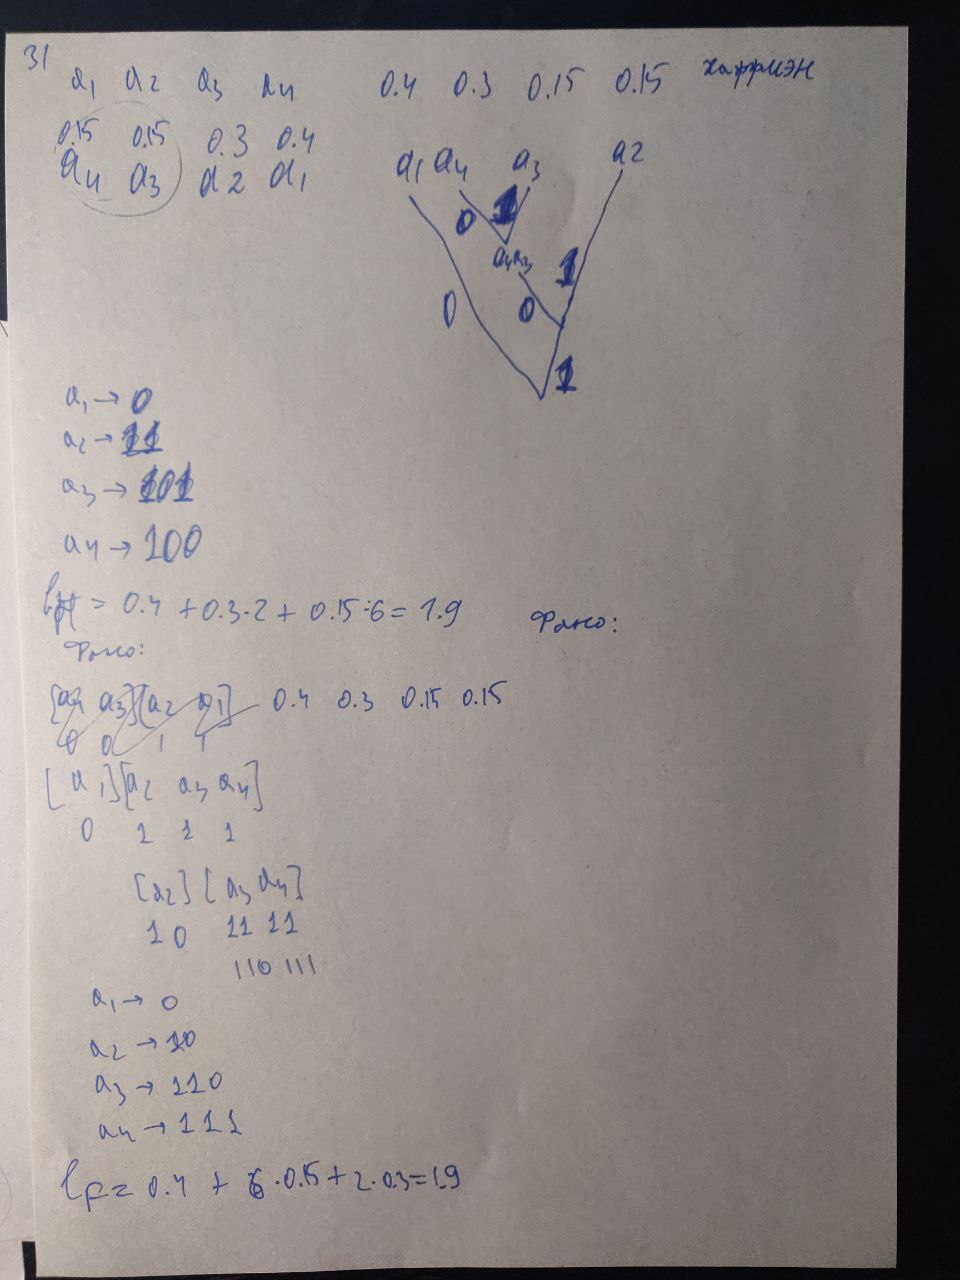 3)
a1 a2 a3 a4 0.4 0.3 0.15 0.15 хаффмэн
0.15 0.15 0.3 0.4
a4 a3 a2 a1
a1 a4 a3 a2
0 1
a4a3 1
0 0
1
a1 → 0
a2 → 11
a3 → 101
a4 → 100
= 0.4 + 0.3·2 + 0.15·6 = 1.9 Фано:
Фано:
[a4 a3][a2 a1] 0.4 0.3 0.15 0.15
0 0 1 1
[a1][a2 a3 a4]
0 1 1 1
[a2] [a3 a4]
10 11 11
110 111
a1 → 0
a2 → 10
a3 → 110
a4 → 111
lF = 0.4 + 6·0.15 + 2·0.3 = 1.9